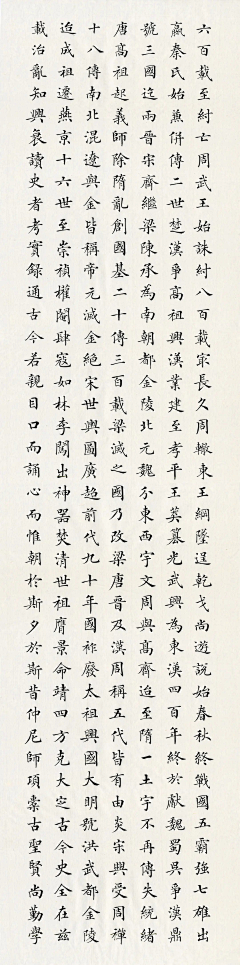 六百載至紂亡周武王始誅紂八百載最長久周轍東王綱墜逞乾戈尚遊說始春秋終戰國五霸強七雄出
嬴秦氏始兼併傳二世楚漢爭高祖興漢業建至孝平王莽篡光武興為東漢四百年終於獻魏蜀吳爭漢鼎
號三國迄兩晉宋齊繼梁陳承為南朝都金陵北元魏分東西宇文周與高齊迨至隋一土宇不再傳失統緒
唐高祖起義師除隋亂創國基二十傳三百載梁滅之國乃改梁唐晉及漢周稱五代皆有由炎宋興受周禪
十八傳南北混遼與金皆稱帝元滅金絕宋世輿圖廣超前代九十年國祚廢太祖興國大明號洪武都金陵
迨成祖遷燕京十六世至崇禎權閹肆寇如林李闖出神器焚清世祖膺景命靖四方克大定古今史全在茲
載治亂知興衰讀史者考實錄通古今若親目口而誦心而惟朝於斯夕於斯昔仲尼師項橐古聖賢尚勤學